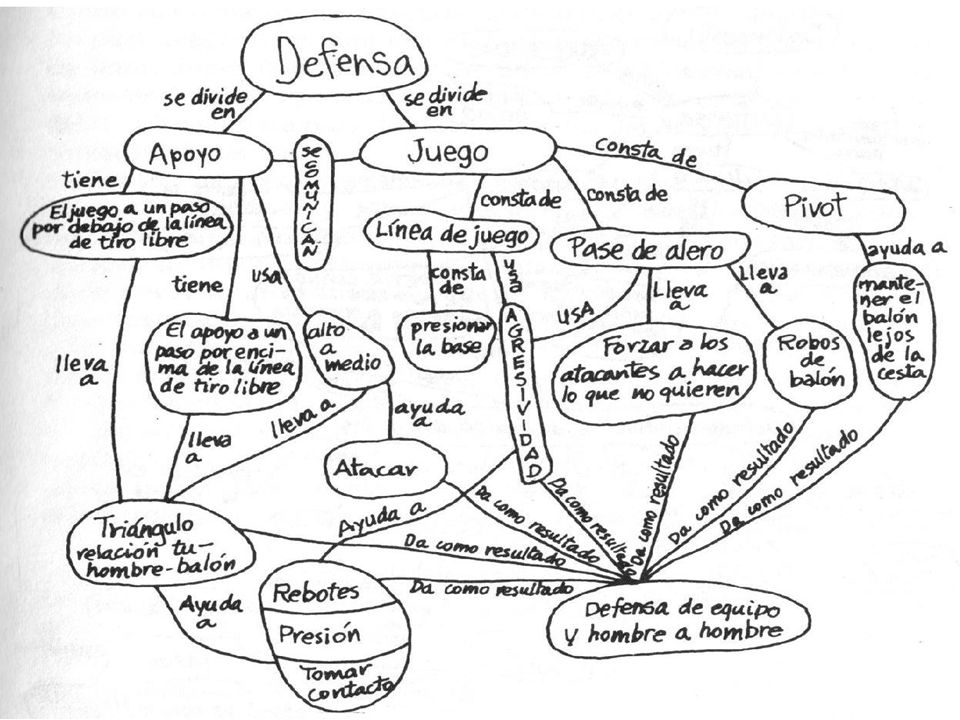 Defensa
se divide
en
se divide
en
Apoyo
se COMUNICAN
Juego
Consta de
tiene
consta de
consta de
Pivot
El juego a un paso
por debajo de la línea
de tiro libre
Línea de juego
Pase de alero
ayuda a
tiene
usa
consta
de
usa
USA
Lleva
a
Lleva
a
mante-
ner el
balón
lejos
de la
cesta
El apoyo a un
paso por enci-
ma de la línea
de tiro libre
alto
a
medio
presionar
la base
AGRESIVIDAD
Forzar a los
atacantes a hacer
lo que no quieren
Robos
de
balón
lleva
a
lleva
a
lleva a
ayuda
a
Atacar
Ayuda a
Da como resultado
Da como resultado
Da como resultado
Da como resultado
Da como resultado
Triángulo
relación tu-
hombre-balón
Da como resultado
Ayuda
a
Rebotes
Presión
Tomar
contacto
Da como resultado
Defensa de equipo
y hombre a hombre